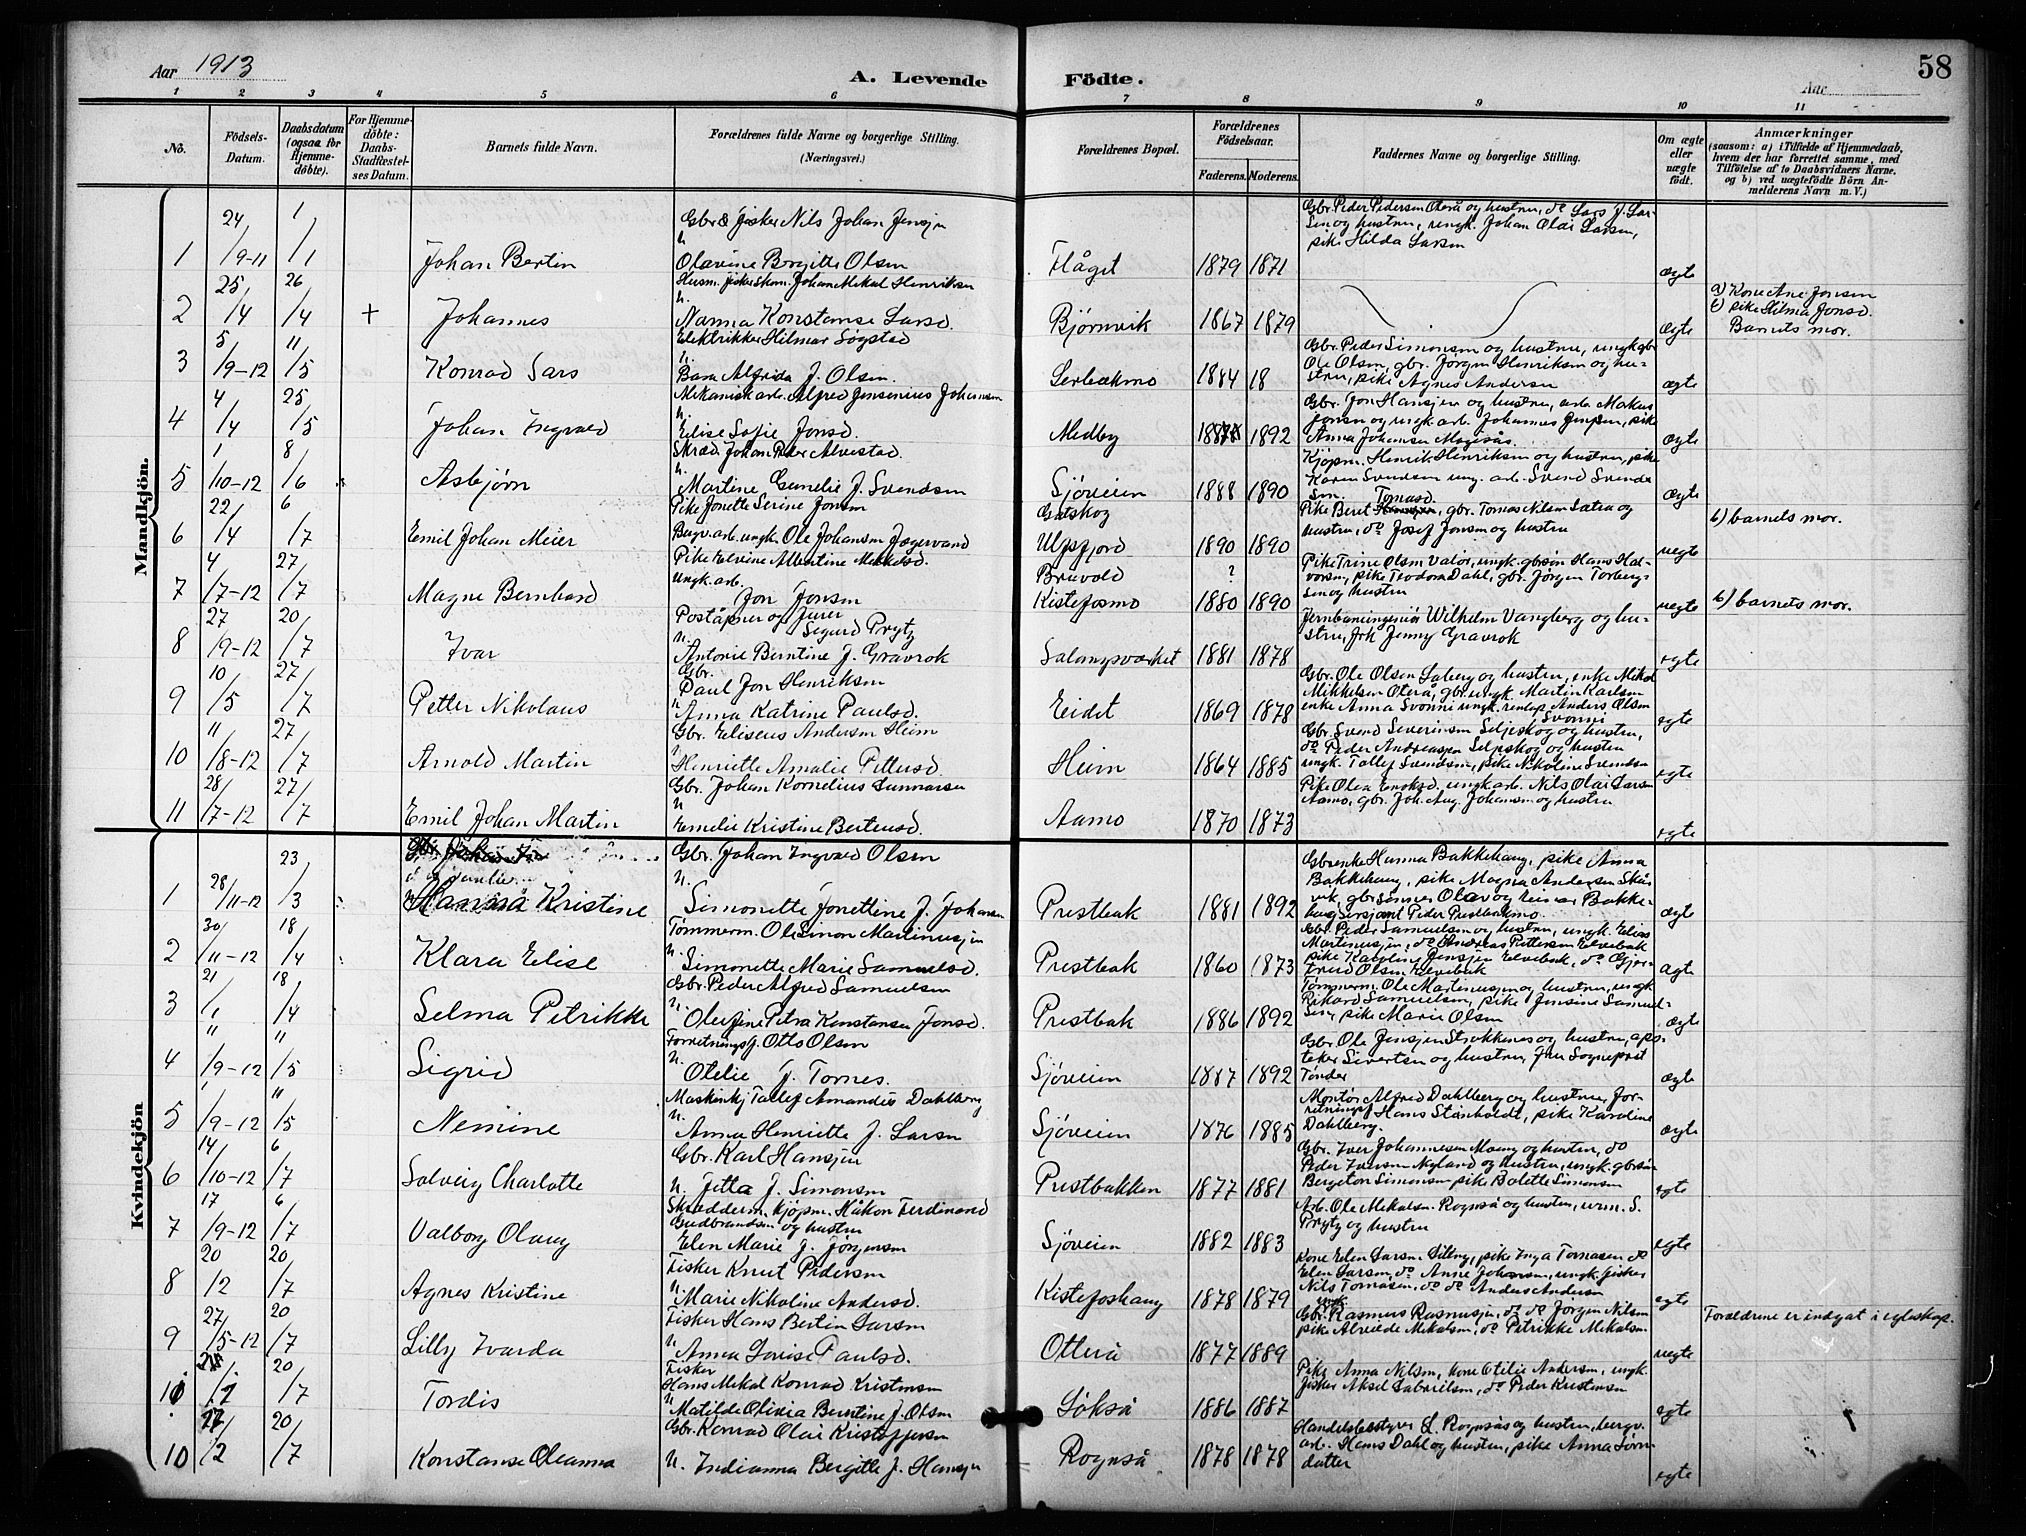 Aar 1913
A. Levende Födte.
Aar
58
1 2 3 4 5 6 7 8 9 10 11
No.
Födsels-Datum.
Daabsdatum (ogsaa for Hjemme-döbte).
For Hjemme-döbte: Daabs-Stadfæstel-ses Datum.
Barnets fulde Navn.
Forældrenes fulde Navne og borgerlige Stilling. (Næringsvei.)
Forældrenes Bopæl.
Forældrenes Födselsaar.
Faderens. Moderens.
Faddernes Navne og borgerlige Stilling.
Om ægte eller uægte födt.
Anmærkninger (saasom: a) i Tilfælde af Hjemmedaab, hvem der har forrettet samme, med Tilföielse af to Daabsvidners Navne, og b) ved uægtefödte Börn An-melderens Navn m. V.)
Mandkjön.
1 24/9-11 1/1 Johan Bertin
Gbr & fisker Nils Johan Jensen
u.
Olavine Birgitte Olsen
Flåget 1879 1871
Gbr. Peder Pedersen Oterå og hustru, do Lars J. Lar-
sen og hustru, ungk. Johan Olai Larsen,
pike Hilda Larsen
ægte
2 25/4 26/4 + Johannes
Johan Mikal Henriksen
u.
Nanna Konstanse Larsd.
Bjørnvik 1867 1879
ægte
a) Kone Ane Jonsen
b) pike Hilma Jonsd.
Barnets mor.
3 5/9-12 11/5 Konrad Lars
Elektrikker Hilmar Søgstad
u.
Bara Alfrida J. Olsen.
1884 18
Gbr. Peder Simonsen og hustru, ungk gbr
Ole Olsen, gbr. Jørgen Henriksen og hu-
stru, pike Agnes Andersen
ægte
4 4/4 25/5 Johan Ingvald
Mekanisk arb. Alfred Jensenius Johansen
u.
Elise Sofie Jonsd.
Medby 1892
Gbr. Jon Hansjen og hustru, arb. Markus
Jonsen og ungk arb. Johannes Jensen, pike
Anna Johansen
ægte
5 1/10-12 8/6 Asbjørn
Skræd. Johan Peder Alvestad.
u.
Martine Gunelie J. Svendsen
Sjøveien 1888 1890
Kjøpm. Henrik Henriksen og hustru, pike
Karen Svendsen ung. arb. Svend Svend-
sen.
ægte
6 22/4 6/7 Emil Johan Meier
Pike Jonette Serine Jonsen
Bergv. arb. ungk. Ole Johansen Jægervand
Gratskog
Ulfsfjord 1890 1890
Pike Beret Tomasd., gbr. Tomas Nilsen Sætra og
hustru, do Josef Jonsen og hustru
uægte
b) barnets mor.
7 4/7-12 27/7 Magne Bernhard
Pike Elvine Albertine Mikkelsd.
Ungk. arb.
Jon Jonsen
Bruvold ?
Kistefosmo 1880 1890
Pike Trine Olsen Valør, ungk. gbrsøn Hans Hal-
vorsen, pike Teodora Dahl, gbr. Jørgen Torberg-
sen og hustru
uegte
b) barnets mor.
8 27/9-12 20/7 Ivar
Poståpner og furer
Sigurd Prytz
u.
Antonie Berntine J. Gravrok
Salangsverket 1881 1878
Jernbaneingeniør Wilhelm Vangberg og hu-
stru, frk Jenny Gravrok
egte
9 10/5 27/7 Petter Nikolaus
Gbr.
Paul Jon Henriksen
u
Anna Katrine Paulsd.
Eidet 1869 1878
Gbr. Ole Olsen Saberg og hustru, enke Mikal
Mikkelsen Oterå, gbr. ungk. Martin Karlsen
enke Anna Svonni ungk. renlap Anders Olsen
Svonni
egte
10 11/8-12 27/7 Arnold Martin
Gbr. Eliseus Andersen Heim
u
Henriette Amalie Pettersd.
Heim 1864 1885
Gbr. Svend Severinsen Seljeskog og hustru,
do Peder Andreassen Seljeskog og hustru
ungk. Tollef Svendsen, pike Nikoline Svendsen
egte
11 28/7-12 27/7 Emil Johan Martin
Gbr. Johan Kornelius Gunnarsen
u
Emelie Kristine Berteusd.
Aamo 1870 1873
Pike Olea Enoksd. ungk arb. Nils Olai Larsen
Aamo, gbr. Joh. Aug. Johansen og hustru
egte
Kvindekjön
1 28/11-12 23/3 Hanna Kristine
Gbr. Johan Ingvald Olsen
u.
Simonette Jonettine J. Johansen
Prestbak 1881 1892
Gbrenke Hanna Bakkehaug, pike Anna
Bakkehaug, pike Magna Andersen Skår-
vik, gbrsønner Olav og Einar Bakke-
haug Sersjant Peder Prestbakmo.
ægte
2 30/11-12 18/4 Klara Elise
Tømmerm. Ole Simon Martinussjen
u.
Simonette Marie Samuelsd.
Prestbak 1860 1873
Gbr. Peder Samuelsen og hustru, ungk. Elias
Martinussjen, do Andreas Pettersen Elvebak
pike Karoline Jensjen Elvebak, do Gjer-
trud Olsen Elvebak
ægte
3 21/1 18/4 Selma Petrikke
Gbr. Peder Alfred Samuelsen
u.
Olufine Petra Konstanse Jonsd.
Prestbak 1886 1892
Tømmerm. Ole Martinussjen og hustru, ungk
Rikard Samuelsen, pike Jensine Samuel-
sen, pike Marie Olsen
ægte
4 11/9-12 11/5 Sigrid
Forretningsf. Otto Olsen
u.
Otelie J. Tornes.
Sjøveien 1887 1892
Gbr. Ole Jensjen Strokkenes og hustru, apo-
teker Sivertsen og hustru, fru Sogneprest
Tønder
ægte
5 1/9-12 11/5 Nemine
Maskinkj Tollef Amandus Dahlberg
u.
Anna Henriette J. Larsen
Sjøveien 1876 1885
Montør Alfred Dahlberg og hustru, For-
retningsf Hans Stenholdt, pike Karoline
Dahlberg.
ægte
6 14/10-12 6/7 Solveig Charlotte
Gbr. Karl Hansjen
u. Jetta J. Simonsen
Prestbakken 1877 1881
Gbr. Iver Johannesen Moeng og hustru, do
Peder Iversen Nyland og hustru, ungk. gbrsøn
Bergeton Simonsen pike Bolette Simonsen
egte
7 17/9-12 6/7 Valborg Olaug
Skræddderm. kjøpm. Håkon Ferdinand
Gudbrandsen og hustru
Elen Marie J. Jørgensen
Sjøveien 1882 1883
Arb. Ole Mikalsen Rognså og hustru, urm. S.
Prytz og hustru
egte
8 20/2 20/7 Agnes Kristine
Fisker Knut Pedersen
u.
Marie Nikoline Andersd.
Kistefoshaug 1878 1879
Kone Elen Larsen pike Inga Tomasen do
Elen Larsen, do Anne Johansen, ungk. fisker
Nils Tomasen, do do Anders Andersen
egte
9 27/5-12 20/7 Lilly Ivarda
Fisker Hans Bertin Larsen
u
Anna Lovise Paulsd.
Otterå 1877 1889
ungk.
Gbr. Rasmus Rasmusjen, do do Jørgen Nilsen
pike Alvilde Mikalsen, do Petrikke Mikalsen
uegte
Foreldrene er indgat i egteskap.
10 20/7 Tordis
Fisker
Hans Mikal Konrad Kristensen
u
Matilde Olivia Berntine J. Olsen
Løkså 1886 1887
Pike Anna Nilsen, kone Otilie Andersen, ungk.
fisker Aksel Gabrielsen, do Peder Kristensen
egte
10 27/2 20/7 Konstanse Oleanna
Gbr. Konrad Olai Kristoffersen
u. Indianna Bergitte J. Hansjen
Rognså 1878 1878
Handelsbestyrer L. Rognsås og hustru, bergv.
arb. Hans Dahl og hustru, pike Anna Jørn-
datter
egte